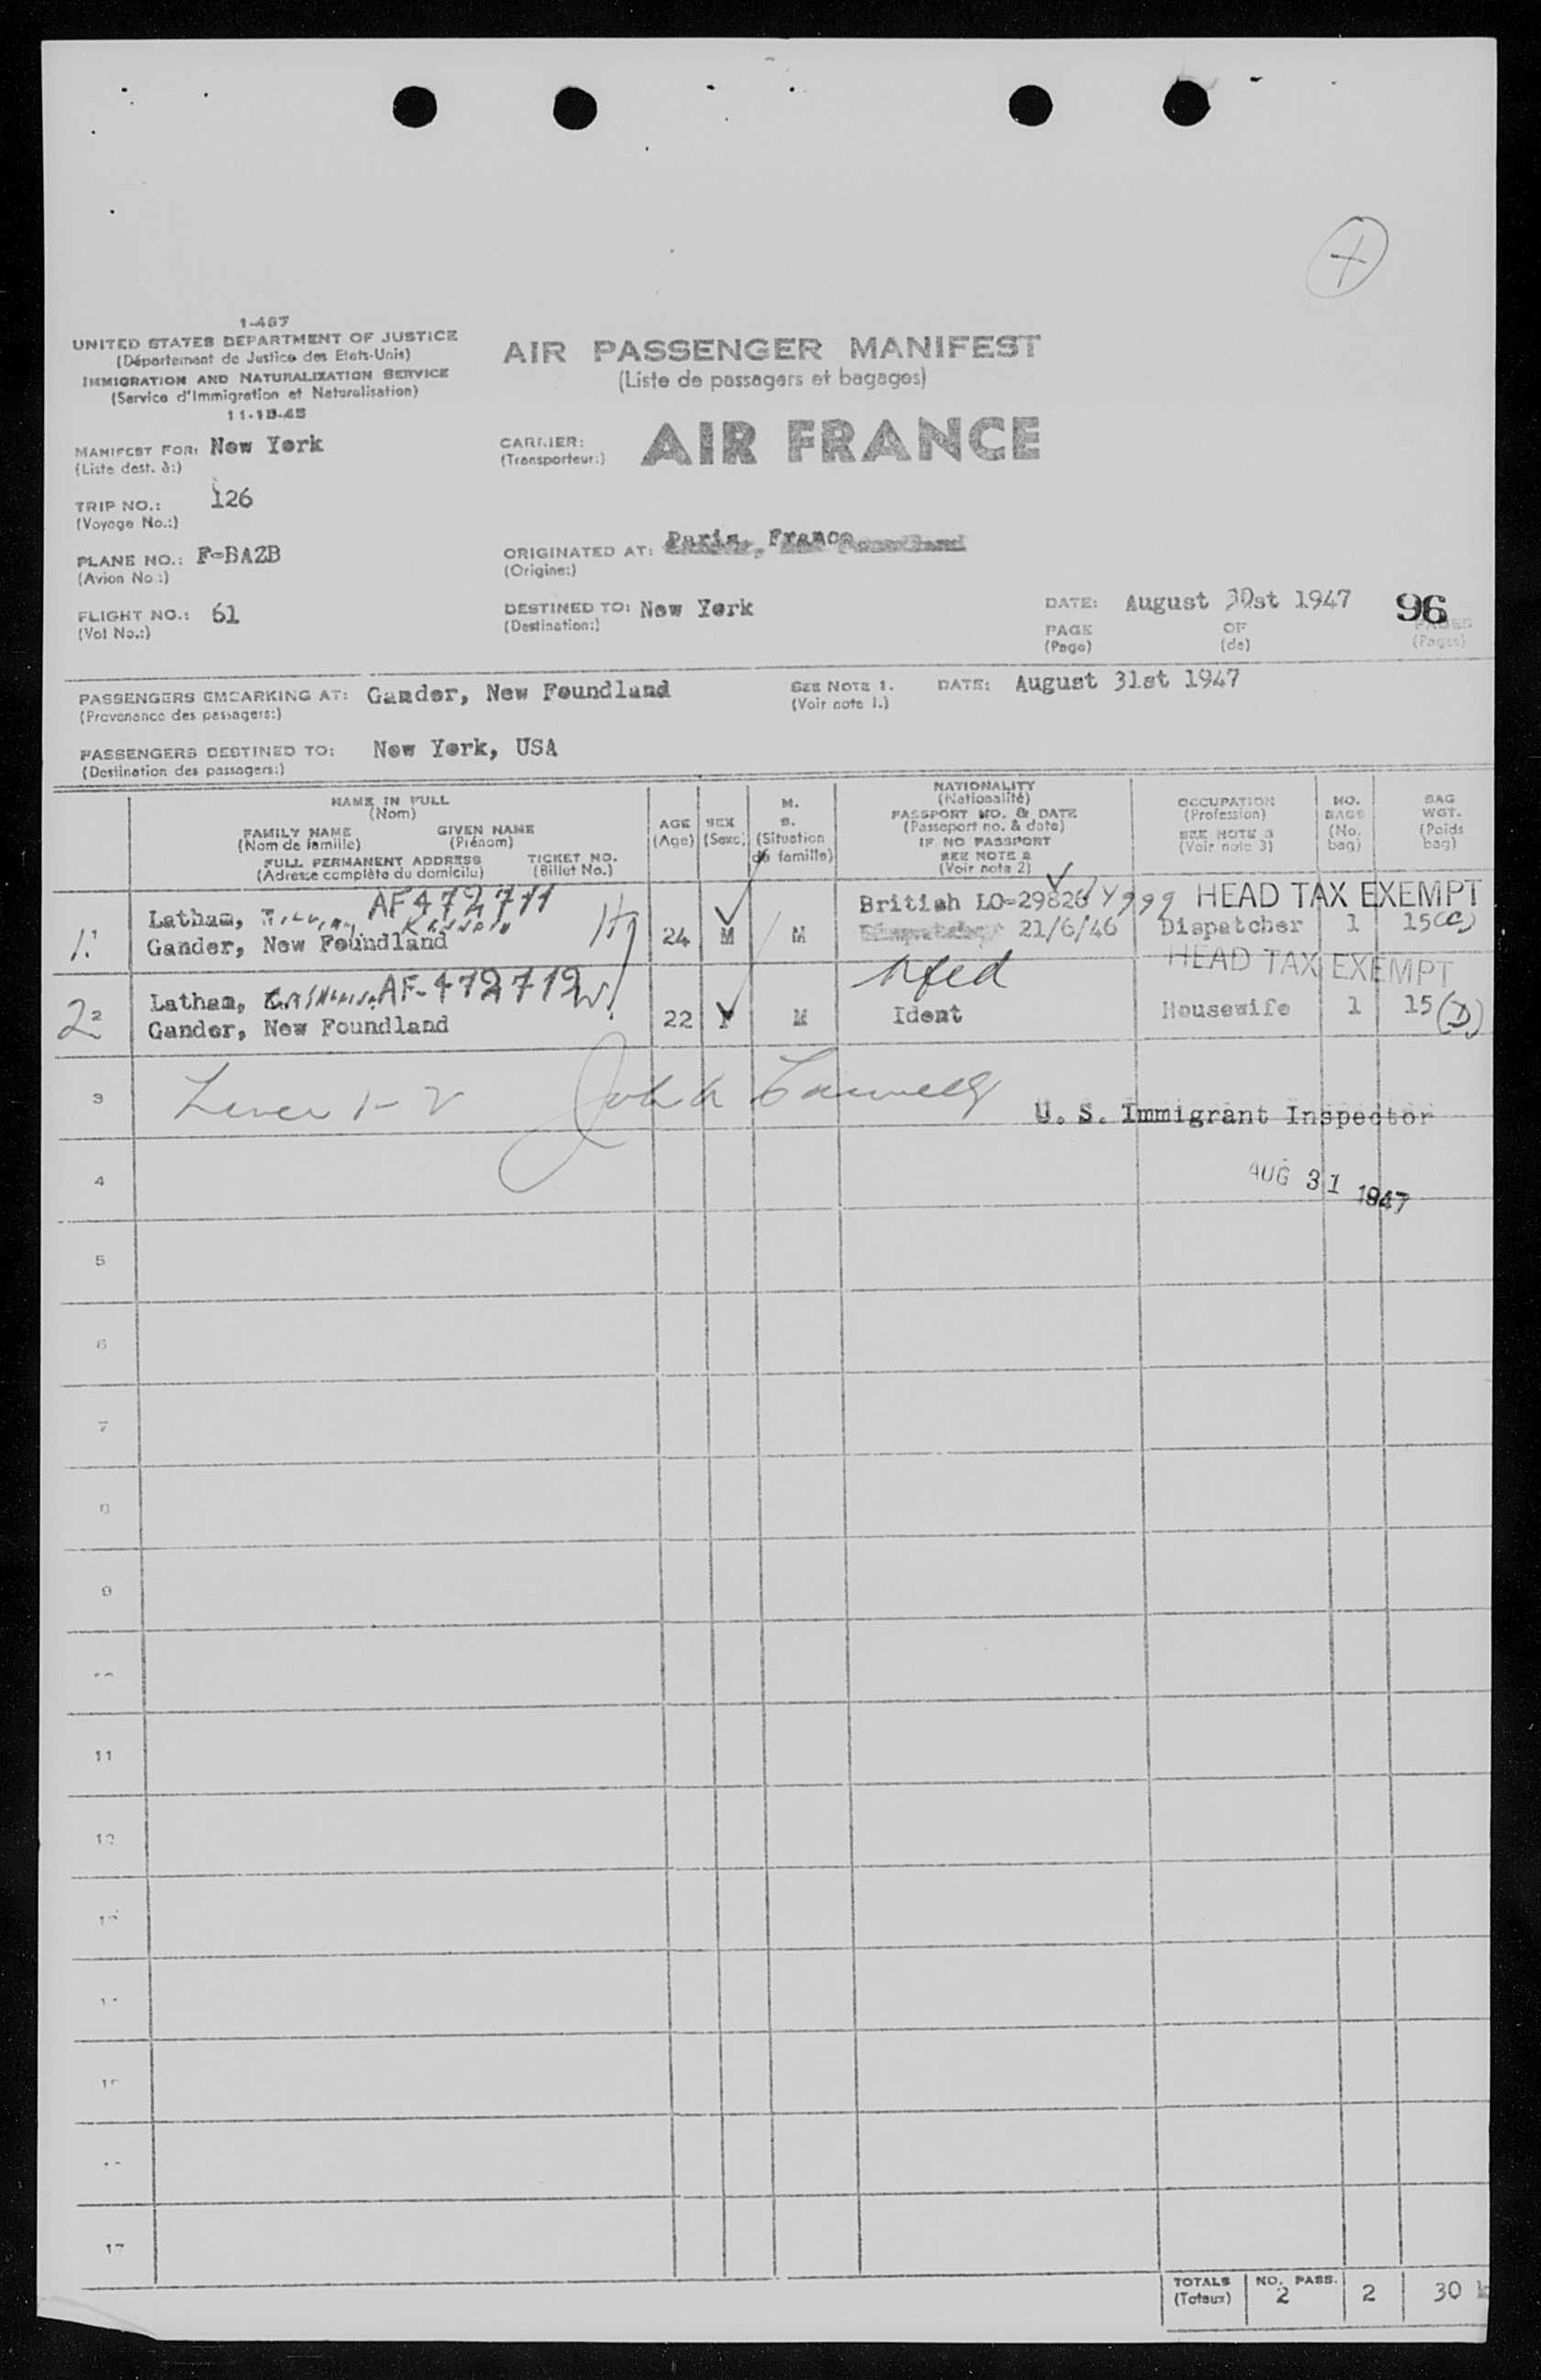 1-467
UNITED STATES DEPARTMENT OF JUSTICE
(Département de Justice des Etats-Unis)
IMMIGRATION AND NATURALIZATION SERVICE
(Service d'Immigration et Naturalisation)
11-15-45
AIR PASSENGER MANIFEST
(Liste de passagers et bagages)
MANIFEST FOR: New York
(Liste dest. à:)
CARRIER: AIR FRANCE
(Transporteur:)
TRIP NO.: 126
(Voyage No.:)
PLANE NO.: F-BAZB
(Avion No.:)
ORIGINATED AT: Paris, France
(Origine:)
FLIGHT NO.: 61
(Vol No.:)
DESTINED TO: New York
(Destination:)
DATE: August 30st 1947 96
PAGE OF PAGES
(Page) (de) (Pages)
PASSENGERS EMBARKING AT: Gander, New Foundland SEE NOTE 1. DATE: August 31st 1947
(Provenance des passagers:) (Voir note 1.)
PASSENGERS DESTINED TO: New York, USA
(Destination des passagers:)
NAME IN FULL
(Nom)
FAMILY NAME GIVEN NAME
(Nom de famille) (Prénom)
FULL PERMANENT ADDRESS TICKET NO.
(Adresse complète du domicile) (Billet No.)
AGE
(Age)
SEX
(Sexe)
M.
S.
(Situation
de famille)
NATIONALITY
(Nationalité)
PASSPORT NO. & DATE
(Passeport no. & date)
IF NO PASSPORT
SEE NOTE 2
(Voir note 2)
OCCUPATION
(Profession)
SEE NOTE 3
(Voir note 3)
NO.
BAGS
(No.
bag)
BAG
WGT.
(Poids
bag)
Latham, AF472711 British LO-29826 HEAD TAX EXEMPT
1 Gander, New Foundland 24 M M 21/6/46 Dispatcher 1 15
HEAD TAX EXEMPT
Latham, AF-472712
2 Gander, New Foundland 22 F M Ident Housewife 1 15 (D)
3 U. S. Immigrant Inspector
4 AUG 31 1947
5
6
7
8
9
11
12
17
TOTALS NO. PASS.
(Totaux) 2 2 30